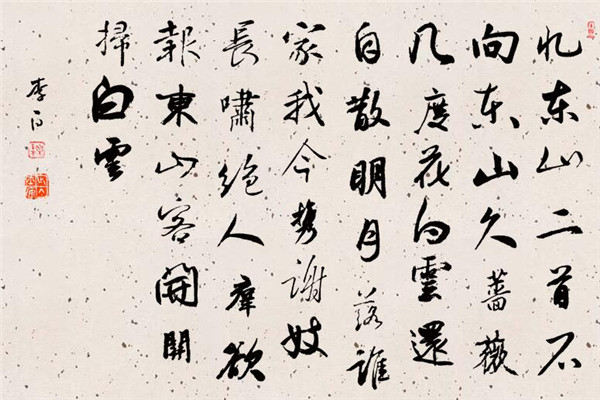 忆东山二首不
向东山久薔薇
几度花白雲還
自散明月落誰
家我今携謝妓
長嘯絶人羣欲
報東山客開関
掃白雲
李白